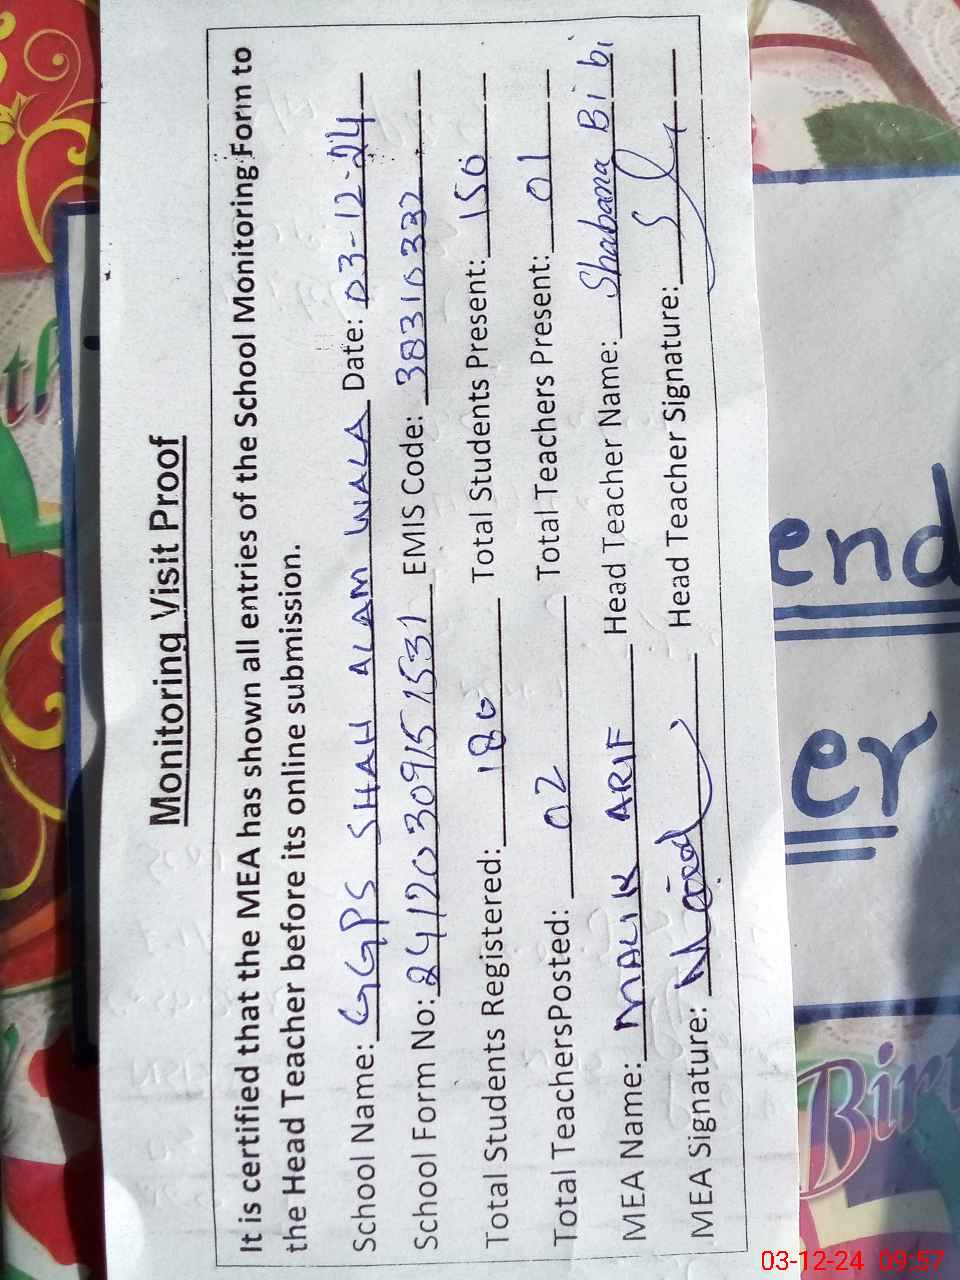 Monitoring Visit Proof
It is certified that the MEA has shown all entries of the School Monitoring Form to
the Head Teacher before its online submission.
School Name: GGPS SHAH ALAM WALA Date: 03-12-24
School Form No: 24120309151531 EMIS Code: 38310332
Total Students Registered: 180 Total Students Present: 150
Total TeachersPosted: 02 Total Teachers Present: 01
MEA Name: MALIK ARIF Head Teacher Name: Shabana Bibi
MEA Signature: Head Teacher Signature:
end
er
Birt
03-12-24 09:57